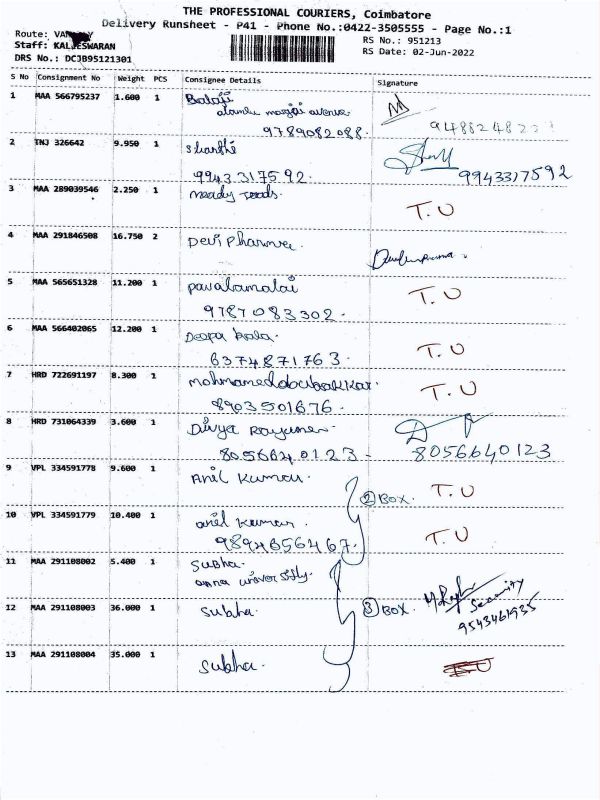 THE PROFESSIONAL COURIERS, Coimbatore
Delivery Runsheet - P41 - Phone No.:0422-3505555 - Page No.:1
Route:
Staff: KALEESWARAN
DRS No.: DCJB95121301
RS No.: 951213
RS Date: 02-Jun-2022
S No Consignment No Weight PCS Consignee Details Signature
1 MAA 566795237 1.600 1 Balaji
avenue
9789082088.
2 TNJ 326642 9.950 1
9943317592. 9943317592
3 MAA 289039546 2.250 1 T.U
4 MAA 291846508 16.750 2 Devi Pharma
5 MAA 565651328 11.200 1 pavalamalai T.U
9787083302.
6 MAA 566402065 12.200 1 Deepa T.U
6374871763.
7 HRD 722691197 8.300 1 T.U
8903501676.
8 HRD 731064339 3.600 1 Divya
8056640123 - 8056640123
9 VPL 334591778 9.600 1 Anil Kumar. T.U
② BOX.
10 VPL 334591779 10.400 1 anil kumar. T.U
9894656467.
11 MAA 291108002 5.400 1 Subha.
anna university.
12 MAA 291108003 36.000 1 Subha. ③ BOX. Security
9543461935
13 MAA 291108004 35.000 1 Subha.